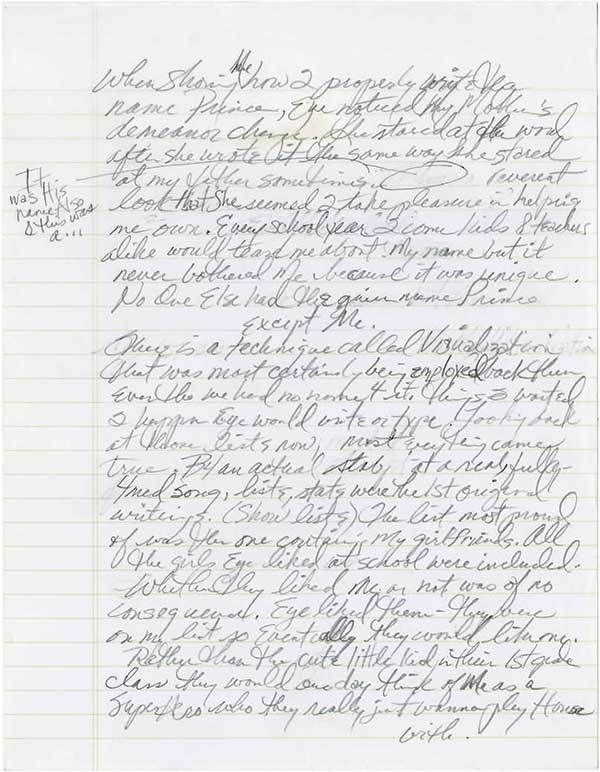 When showing me how 2 properly write the
name Prince, Eye noticed my Mother's
demeanor change. She stared at the word
after she wrote it the same way she stared
at my father sometimes.
It
was His
name also
& this was
a...
reverent
look that she seemed 2 take pleasure in helping
me own. Every school year 2 come kids & teachers
alike would tease me about my name but it
never bothered me because it was unique.
No One Else had the given name Prince
except Me.
There is a technique called Visualization
that was most certainly being employed back then
Even tho we had no name 4 it. Things wanted
2 happen Eye would write or type. Looking back
at those lists now, most everything came
true. By an actual stab at a fully-
4med song, lists, stats were the 1st original
writings. (Show lists) The list most proud
of was the one containing my girlfriends. All
the girls Eye liked at school were included.
Whether they liked me or not was of no
consequence. Eye liked them - They were
on my list so Eventually they would like me.
Rather than the cute little kid in their 1st grade
class they would one day think of Me as a
Superhero who they really just wanna play House
with.